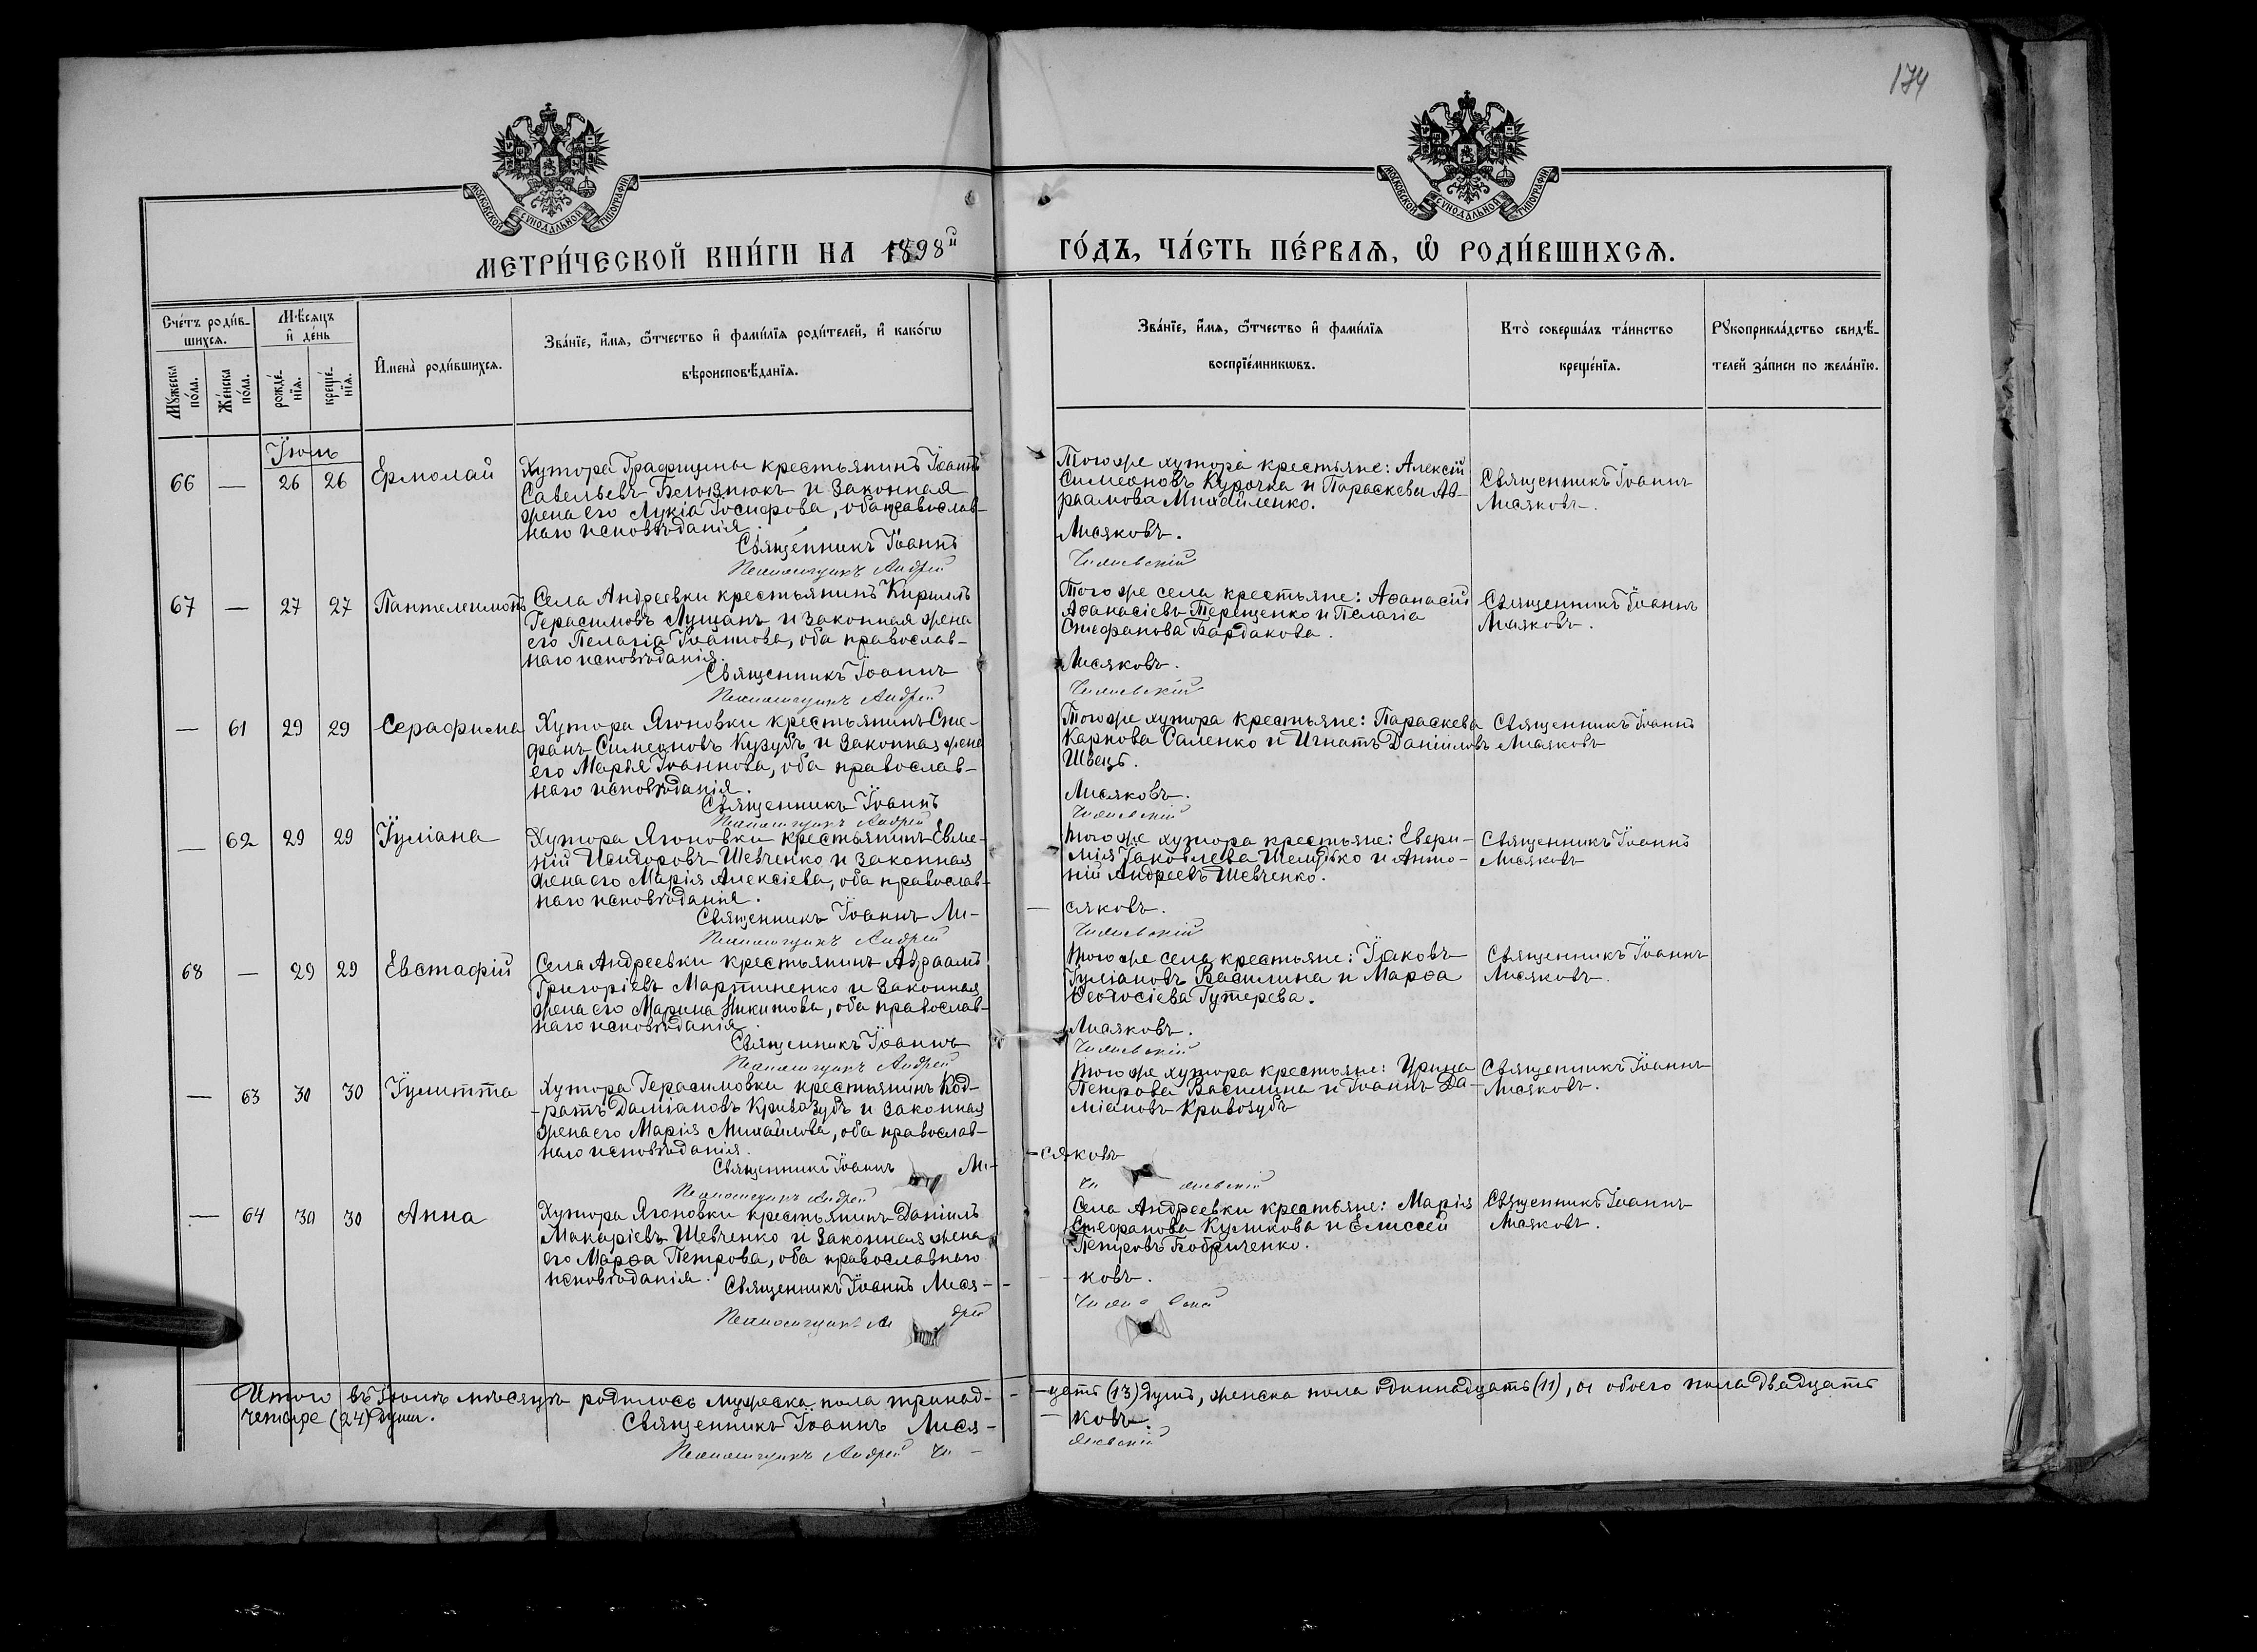 174
МОСКОВСКОЙ СѴНОДАЛЬНОЙ ТИПОГРАФІИ
МОСКОВСКОЙ СѴНОДАЛЬНОЙ ТИПОГРАФІИ
МЕТРИ́ЧЕСКОЙ КНИ́ГИ НА 1898й ГО́ДЪ, ЧА́СТЬ ПЕ́РВАѦ, Ѡ҆ РОДИ́ВШИХСѦ.
Сче́тъ роди́в-
шихсѧ.
Мѣ́сѧцъ
и҆ де́нь
Мꙋ́жеска
по́ла.
Же́нска
по́ла.
рожде́-
нїѧ.
креще́-
нїѧ.
И҆мена̀ роди́вшихсѧ.
Зва́нїе, и҆́мѧ, ѻ҆́тчество и҆ фами́лїѧ роди́телей, и҆ како́гѡ
вѣроисповѣ́данїѧ.
Зва́нїе, и҆́мѧ, ѻ҆́тчество и҆ фами́лїѧ
воспрїе́мникѡвъ.
Кто̀ соверша́лъ та́инство
креще́нїѧ.
Рꙋкоприкла́дство свидѣ́-
телей за́писи по жела́нїю.
Іюль
66 — 26 26 Ермолай
Хутора Графщины крестьянинъ Іоаннъ
Савельевъ и законная
жена его Лукія Іосифова, оба православ-
наго исповѣданія.
Священникъ Іоаннъ Лисяковъ.
Псаломщикъ Андрей
Того же хутора крестьяне: Алексій
Симеоновъ Курочка и Параскева Ав-
раамова Михайленко.
Священникъ Іоаннъ
Лисяковъ.
67 — 27 27 Пантелеимонъ
Села Андреевки крестьянинъ Кириллъ
Герасимовъ Лущанъ и законная жена
его Пелагія Іоаннова, оба православ-
наго исповѣданія.
Священникъ Іоаннъ Лисяковъ.
Псаломщикъ Андрей
Того же села крестьяне: Аѳанасій
Аѳанасіевъ Терещенко и Пелагія
Стефанова Бардакова.
Священникъ Іоаннъ
Лисяковъ.
— 61 29 29 Серафима
Хутора Ягоновки крестьянинъ Сте-
фанъ Симеоновъ Кузубъ и законная жена
его Марія Іоаннова, оба православ-
наго исповѣданія.
Священникъ Іоаннъ Лисяковъ.
Псаломщикъ Андрей
Того же хутора крестьяне: Параскева
Карпова Саленко и Игнатъ Даніиловъ
Швецъ.
Священникъ Іоаннъ
Лисяковъ
— 62 29 29 Іуліана
Хутора Ягоновки крестьянинъ Евме-
ній Исидоровъ Шевченко и законная
жена его Марія Алексіева, оба православ-
наго исповѣданія.
Священникъ Іоаннъ Ли-сяковъ.
Псаломщикъ Андрей
Того же хутора крестьяне:
Іаковлева Шелудько и Анто-
ній Андреевъ Шевченко.
Священникъ Іоаннъ
Лисяковъ
68 — 29 29 Евстафій
Села Андреевки крестьянинъ Авраамъ
Григоріевъ Мартиненко и законная
жена его Марина Никитова, оба православ-
наго исповѣданія.
Священникъ Іоаннъ Лисяковъ.
Псаломщикъ Андрей
Того же села крестьяне: Іаковъ
Іуліановъ Василина и Марѳа
Ѳеодосіева Гутерева.
Священникъ Іоаннъ
Лисяковъ.
— 63 30 30 Іулитта
Хутора Герасимовки крестьянинъ Код-
ратъ Даміановъ Кривозубъ и законная
жена его Марія Михайлова, оба православ-
наго исповѣданія.
Священникъ Іоаннъ Ли-сяковъ
Псаломщикъ Андрей
Того же хутора крестьяне: Ирина
Петрова Василина и Іоаннъ Да-
міановъ Кривозубъ
Священникъ Іоаннъ
Лисяковъ.
— 64 30 30 Анна
Хутора Ягоновки крестьянинъ Даніилъ
Макаріевъ Шевченко и законная жена
его Марѳа Петрова, оба православнаго
исповѣданія.
Священникъ Іоаннъ Лися-ковъ.
Псаломщикъ
Села Андреевки крестьяне: Марія
Стефанова Куликова и Елиссей
Петровъ Бобриченко.
Священникъ Іоаннъ
Лисяковъ.
Итого въ Іюлѣ мѣсяцѣ родилось мужеска пола тринад-цать (13) душъ, женска пола одиннадцать (11), а обоего пола двадцать
четыре (24) души.
Священникъ Іоаннъ Лися-ковъ.
Псаломщикъ Андрей